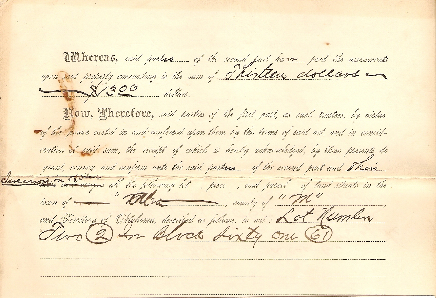 Whereas, said parties of the second part have paid the assessments
upon said property amounting to the sum of Thirteen dollars
$1300 dollars.
Now, Therefore, said parties of the first part, as such trustees, by virtue
of the power vested in and conferred upon them by the terms of said act and in consid-
eration of said sum, the receipt of which is hereby acknowledged, by these presents do
grant, convey and confirm unto the said parties of the second part and Their
all the following lot, piece and parcel of land situate in the
town of county of "M"
and Territory of Oklahoma, described as follows, to wit: Lot Number
Two (2) In Block Sixty one (61)